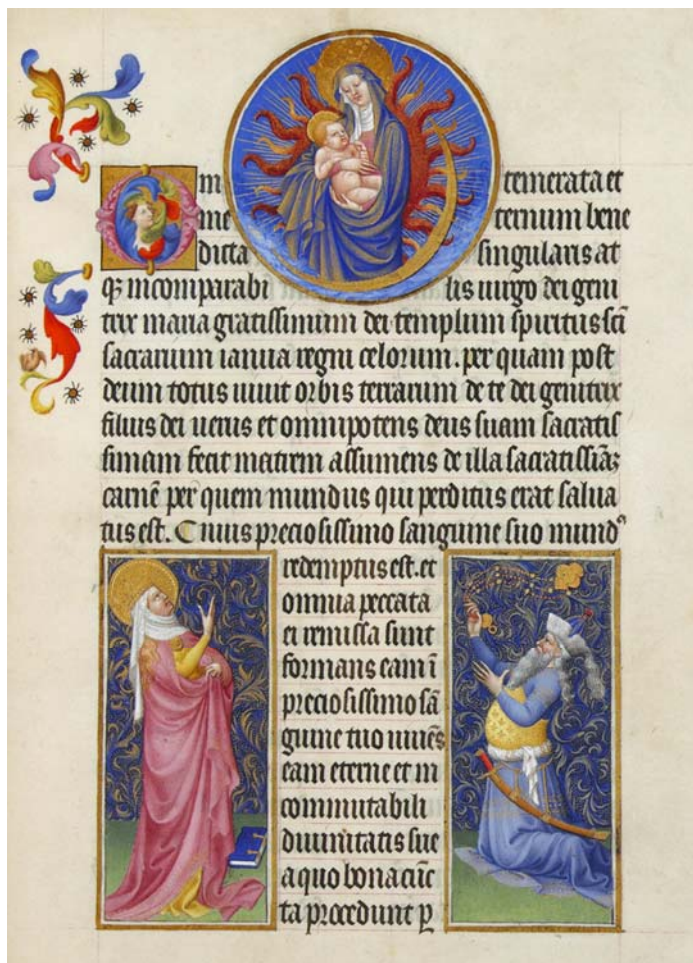 O in temerata et
in eternum bene
dicta singularis at
qꝫ incomparabi lis uirgo dei geni
trix maria gratissimum dei templum spiritus sc̄i
sacrarium ianua regni celorum. per quam post
deum totus uiuit orbis terrarum de te dei genitrix
filius dei uerus et omnipotens deus suam sacratis
simam fecit matrem assumens de illa sacratissiāꝫ
carnē per quem mundus qui perditus erat salua
tus est. Cuius preciosissimo sanguine suo mundꝰ
redemptus est. et
omnia peccata
ei remissa sunt
formans eam ī
preciosissimo sā
guine tuo uiuēs
eam eterne et in
commutabili
diuinitatis sue
a quo bona cūc
ta procedunt ꝑ